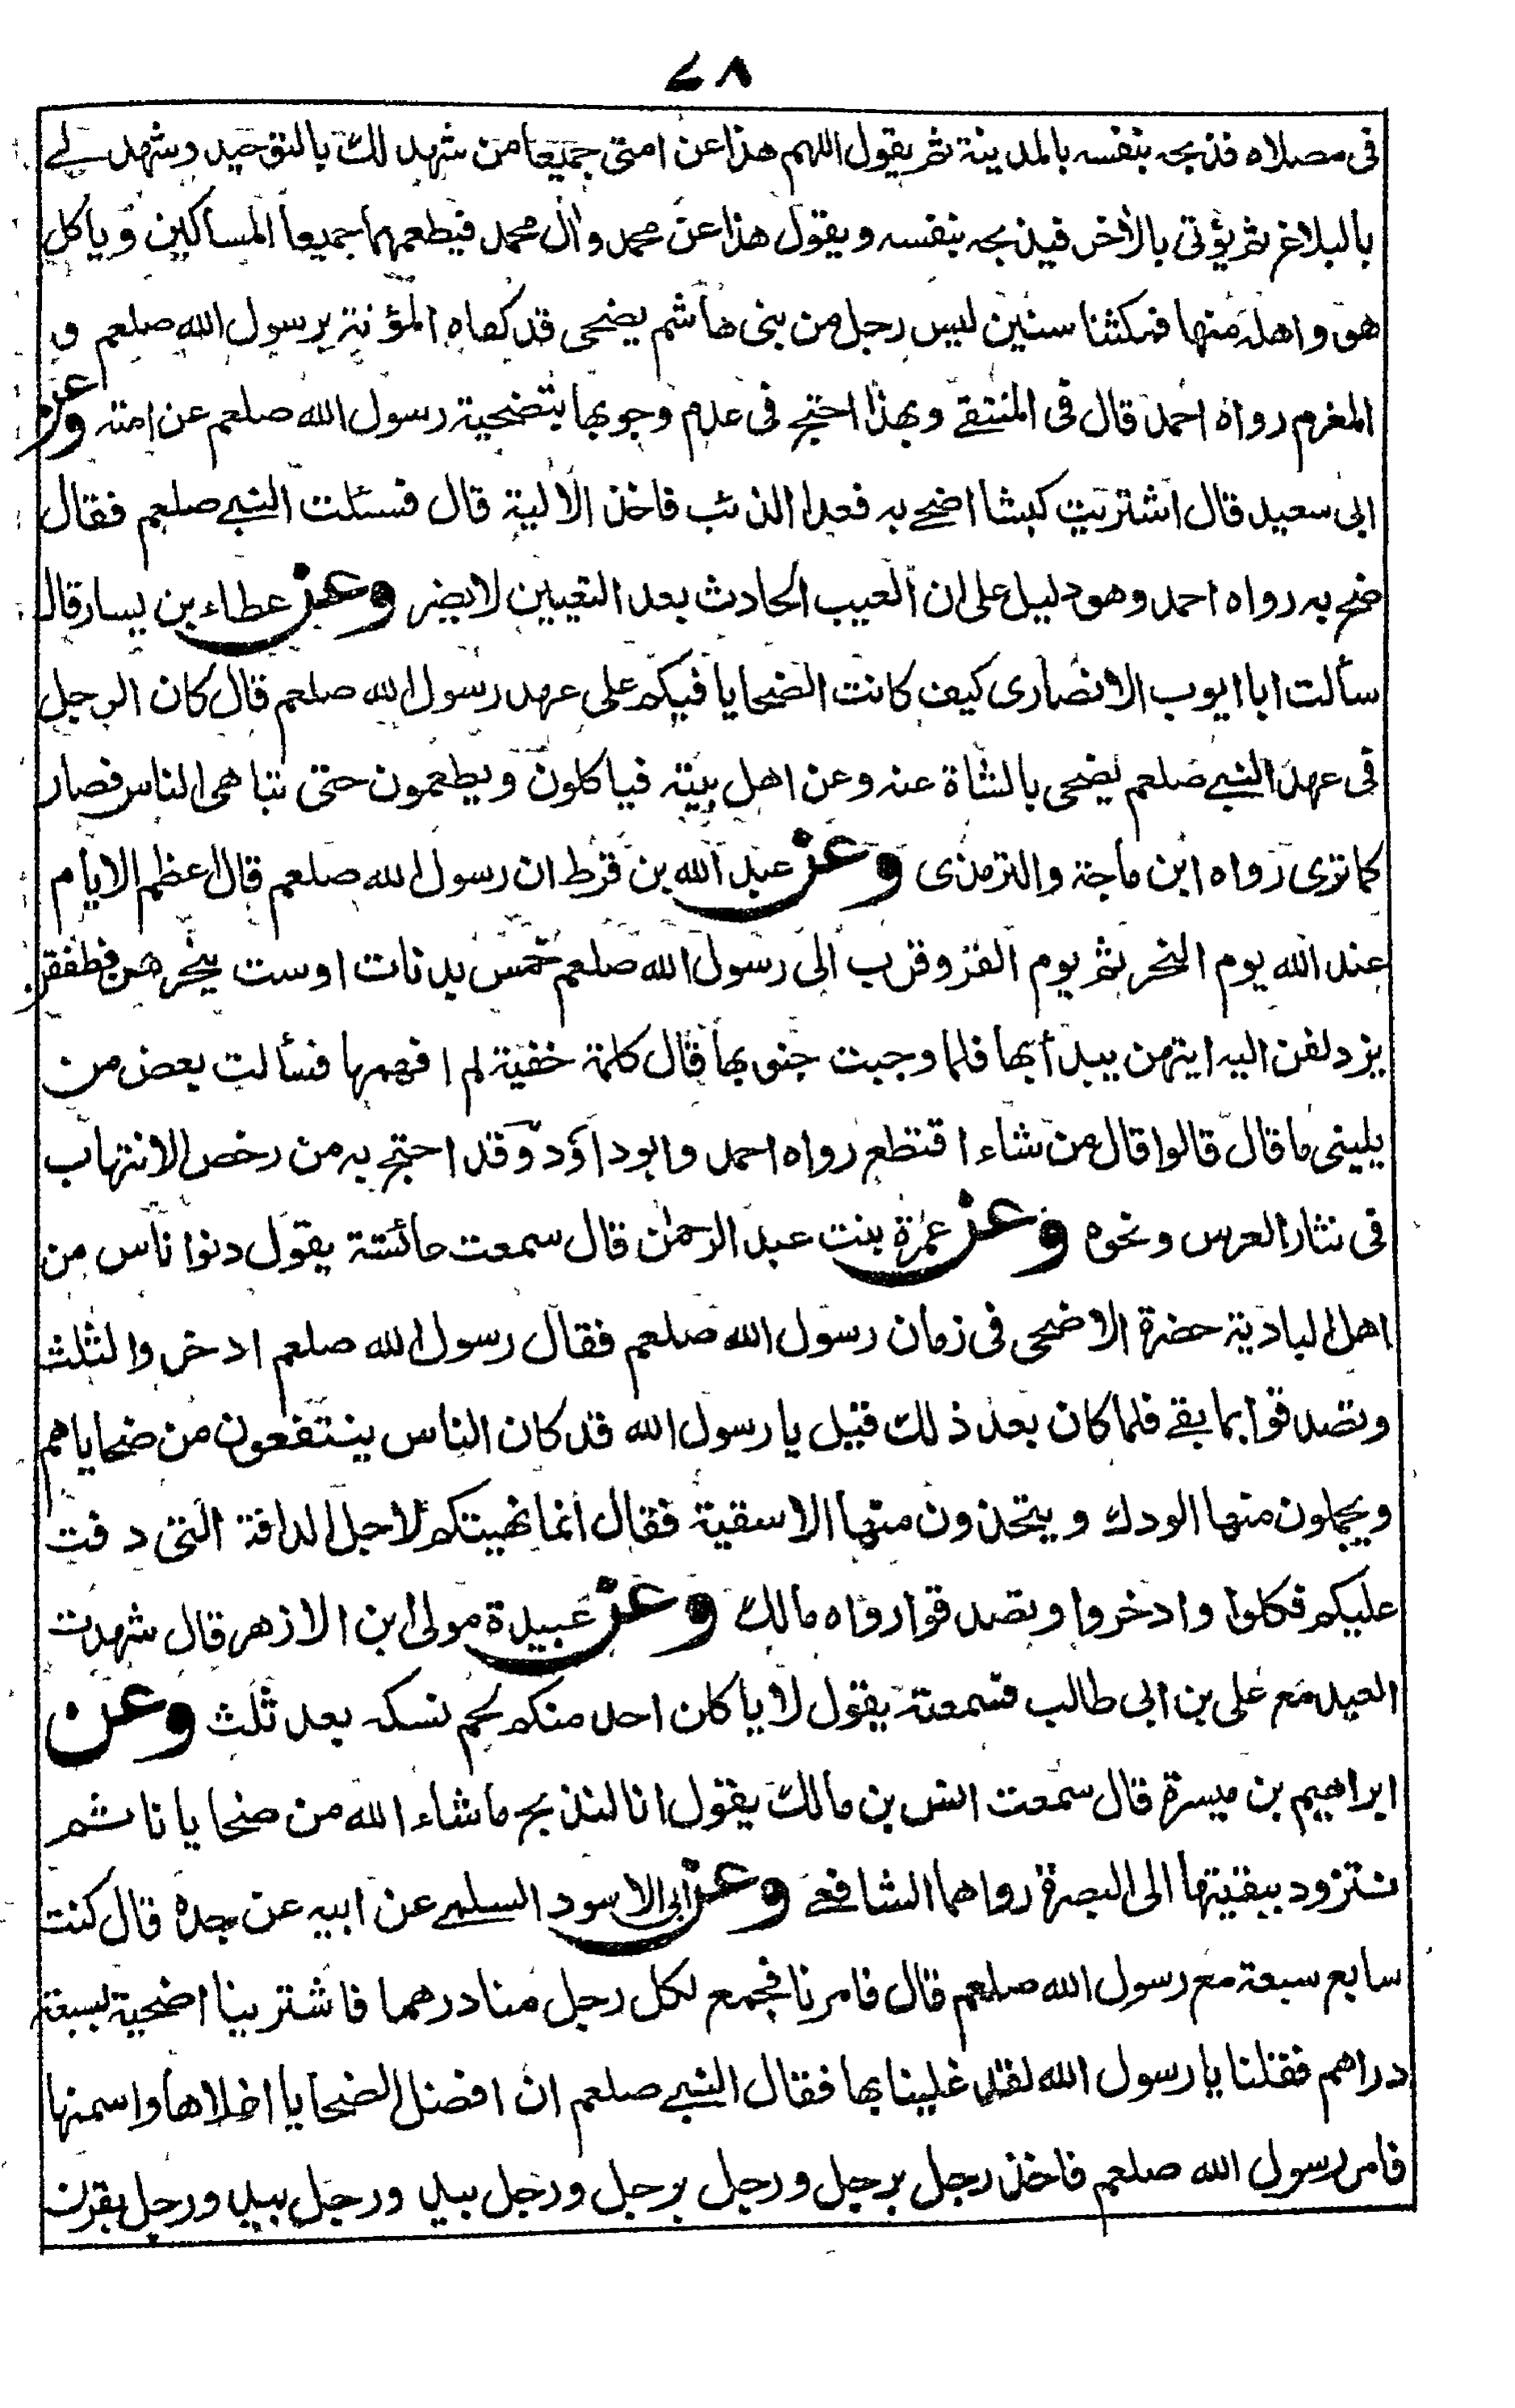 ٧٨
فى مصلاه فذبحه بنفسه بالمدينة ثم يقول اللهم هذا عن امتى جميعا من شهد لك بالتوحيد وشهد لے
بالبلاغ ثم يؤتى بالأخر فيذبحه بنفسه ويقول هذا عن محمد وال محمد فيطعمهما جميعا المساكين وياكل
هو واهله منها فمكثنا سنين ليس رجل من بنى هاشم يضحى قد كفاه المؤنة برسول الله صلعم و
المغرم رواه احمد قال فى المنتقے وبهذا احتج فى عدم وجوبها بتضحية رسول الله صلعم عن امته وعن
ابى سعيد قال اشتريت كبشا اضحے به فعدا الذئب فاخذ الالية قال فسئلت النبے صلعم فقال
ضح به رواه احمد وهو دليل على ان العيب الحادث بعد التعيين لا يضر وعن عطاء بن يسار قال
سألت ابا ايوب الانصارى كيف كانت الضحايا فيكم على عهد رسول الله صلعم قال كان الرجل
فى عهد النبے صلعم يضحى بالشاة عنه وعن اهل بيته فياكلون ويطعمون حتى تباهى الناس فصار
كما ترى رواه ابن ماجة والترمذى وعن عبد الله بن قرط ان رسول الله صلعم قال اعظم الايام
عند الله يوم النحر ثم يوم القر وقرب الى رسول الله صلعم خمس بدنات اوست ينحرهن فطفقن
يزدلفن اليه ايتهن يبدأ بها فلما وجبت جنوبها قال كلمة خفية لم افهمها فسألت بعض من
يلينى ما قال قالوا قال من شاء اقتطع رواه احمد وابوداؤد وقد احتج به من رخص الانتهاب
فى نثار العرس ونحوه وعن عمرة بنت عبد الرحمٰن قال سمعت عائشة يقول دنوا ناس من
اهل البادية حضرة الاضحى فى زمان رسول الله صلعم فقال رسول الله صلعم ادخروا لثلث
وتصدقوا بما بقے فلما كان بعد ذلك قيل يا رسول الله قد كان الناس ينتفعون من ضحاياهم
ويجملون منها الودك ويتخذون منها الاسقية فقال انما نهيتكم لاجل الدافة التى دفت
عليكم فكلوا وادخروا وتصدقوا رواه مالك وعن عبيدة مولى ابن الازهر قال شهدت
العيد مع على بن ابى طالب فسمعته يقول لا ياكان احد منكم لحم نسكه بعد ثلث وعن
ابراهيم بن ميسرة قال سمعت انس بن مالك يقول انا لنذبح ما شاء الله من ضحايانا ثم
نتزود ببقيتها الى البصرة رواهما الشافعے وعن ابى الاسود السلمے عن ابيه عن جده قال كنت
سابع سبعة مع رسول الله صلعم قال فامرنا فجمع لكل رجل منا درهما فاشترينا اضحية بسبعة
دراهم فقلنا يا رسول الله لقد غلينا بها فقال النبے صلعم ان افضل الضحايا اغلاها واسمنها
فامر رسول الله صلعم فاخذ رجل برجل ورجل برجل ورجل بيد ورجل بيد ورجل بقرن